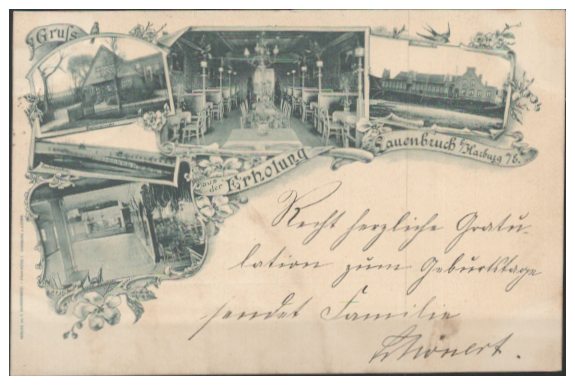 Gruss
aus
der Erholung
Lauenbruch b/Harburg 7/E.
Recht herzliche Gratu-
lation zum Geburtstage
sendet Familie